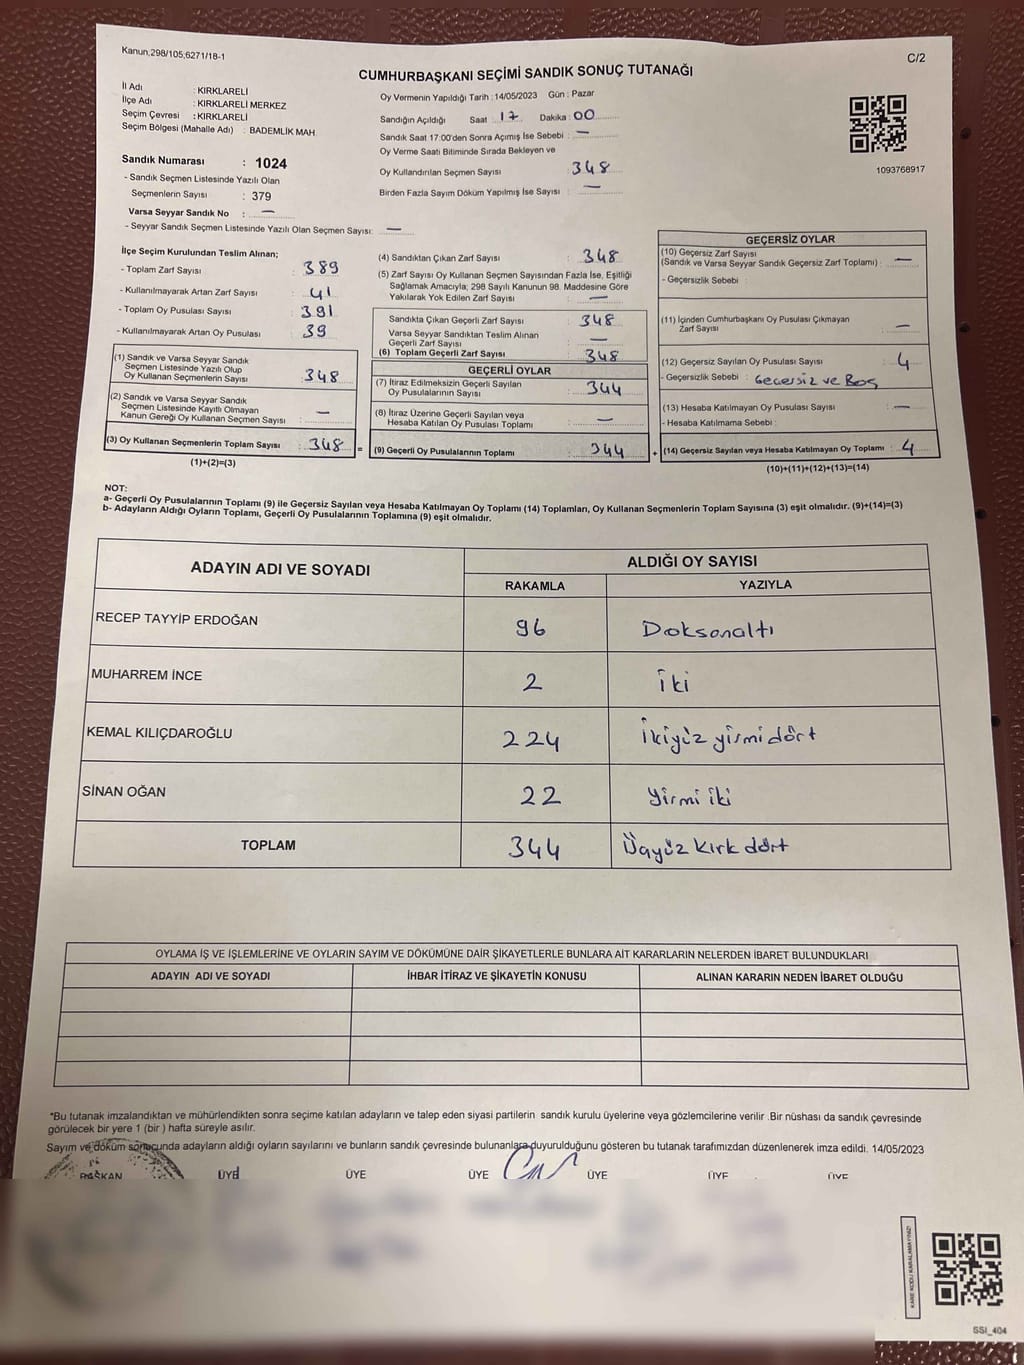 Kanun,298/105;6271/18-1
C/2
CUMHURBAŞKANI SEÇİMİ SANDIK SONUÇ TUTANAĞI
İl Adı : KIRKLARELİ
İlçe Adı : KIRKLARELİ MERKEZ
Seçim Çevresi : KIRKLARELİ
Seçim Bölgesi (Mahalle Adı) : BADEMLİK MAH.
Sandık Numarası : 1024
- Sandık Seçmen Listesinde Yazılı Olan
Seçmenlerin Sayısı : 379
Varsa Seyyar Sandık No : —
- Seyyar Sandık Seçmen Listesinde Yazılı Olan Seçmen Sayısı: —
Oy Vermenin Yapıldığı Tarih : 14/05/2023 Gün : Pazar
Sandığın Açıldığı Saat : 17 Dakika : 00
Sandık Saat 17.00'den Sonra Açımış İse Sebebi : —
Oy Verme Saati Bitiminde Sırada Bekleyen ve
Oy Kullandırılan Seçmen Sayısı : 348
Birden Fazla Sayım Döküm Yapılmış İse Sayısı : —
1093768917
İlçe Seçim Kurulundan Teslim Alınan;
- Toplam Zarf Sayısı : 389
- Kullanılmayarak Artan Zarf Sayısı : 41
- Toplam Oy Pusulası Sayısı : 391
- Kullanılmayarak Artan Oy Pusulası : 39
(1) Sandık ve Varsa Seyyar Sandık
Seçmen Listesinde Yazılı Olup
Oy Kullanan Seçmenlerin Sayısı : 348
(2) Sandık ve Varsa Seyyar Sandık
Seçmen Listesinde Kayıtlı Olmayan
Kanun Gereği Oy Kullanan Seçmen Sayısı : —
(3) Oy Kullanan Seçmenlerin Toplam Sayısı : 348 =
(1)+(2)=(3)
(4) Sandıktan Çıkan Zarf Sayısı : 348
(5) Zarf Sayısı Oy Kullanan Seçmen Sayısından Fazla İse, Eşitliği
Sağlamak Amacıyla; 298 Sayılı Kanunun 98. Maddesine Göre
Yakılarak Yok Edilen Zarf Sayısı : —
Sandıkta Çıkan Geçerli Zarf Sayısı : 348
Varsa Seyyar Sandıktan Teslim Alınan
Geçerli Zarf Sayısı : —
(6) Toplam Geçerli Zarf Sayısı : 348
GEÇERLİ OYLAR
(7) İtiraz Edilmeksizin Geçerli Sayılan
Oy Pusulalarının Sayısı : 344
(8) İtiraz Üzerine Geçerli Sayılan veya
Hesaba Katılan Oy Pusulası Toplamı : —
(9) Geçerli Oy Pusulalarının Toplamı : 344 +
GEÇERSİZ OYLAR
(10) Geçersiz Zarf Sayısı
(Sandık ve Varsa Seyyar Sandık Geçersiz Zarf Toplamı) : —
- Geçersizlik Sebebi :
(11) İçinden Cumhurbaşkanı Oy Pusulası Çıkmayan
Zarf Sayısı : —
(12) Geçersiz Sayılan Oy Pusulası Sayısı : 4
- Geçersizlik Sebebi : Gecersiz ve Boş
(13) Hesaba Katılmayan Oy Pusulası Sayısı : —
- Hesaba Katılmama Sebebi :
(14) Geçersiz Sayılan veya Hesaba Katılmayan Oy Toplamı : 4
(10)+(11)+(12)+(13)=(14)
NOT:
a- Geçerli Oy Pusulalarının Toplamı (9) ile Geçersiz Sayılan veya Hesaba Katılmayan Oy Toplamı (14) Toplamları, Oy Kullanan Seçmenlerin Toplam Sayısına (3) eşit olmalıdır. (9)+(14)=(3)
b- Adayların Aldığı Oyların Toplamı, Geçerli Oy Pusulalarının Toplamına (9) eşit olmalıdır.
ADAYIN ADI VE SOYADI ALDIĞI OY SAYISI
RAKAMLA YAZIYLA
RECEP TAYYİP ERDOĞAN 96 Doksanaltı
MUHARREM İNCE 2 İki
KEMAL KILIÇDAROĞLU 224 İkiyüz yirmidört
SİNAN OĞAN 22 Yirmi iki
TOPLAM 344 Üçyüz kırk dört
OYLAMA İŞ VE İŞLEMLERİNE VE OYLARIN SAYIM VE DÖKÜMÜNE DAİR ŞİKAYETLERLE BUNLARA AİT KARARLARIN NELERDEN İBARET BULUNDUKLARI
ADAYIN ADI VE SOYADI İHBAR İTİRAZ VE ŞİKAYETİN KONUSU ALINAN KARARIN NEDEN İBARET OLDUĞU
*Bu tutanak imzalandıktan ve mühürlendikten sonra seçime katılan adayların ve talep eden siyasi partilerin sandık kurulu üyelerine veya gözlemcilerine verilir .Bir nüshası da sandık çevresinde
görülecek bir yere 1 (bir ) hafta süreyle asılır.
Sayım ve döküm sonucunda adayların aldığı oyların sayılarını ve bunların sandık çevresinde bulunanlara duyurulduğunu gösteren bu tutanak tarafımızdan düzenlenerek imza edildi. 14/05/2023
BAŞKAN ÜYE ÜYE ÜYE ÜYE ÜYE ÜYE
KARE KODU KARALAMAYINIZ!
SSI_404